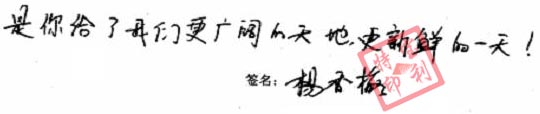 是你给了我们更广阔的天地，更新鲜的一天！
签名：杨香
特
印利